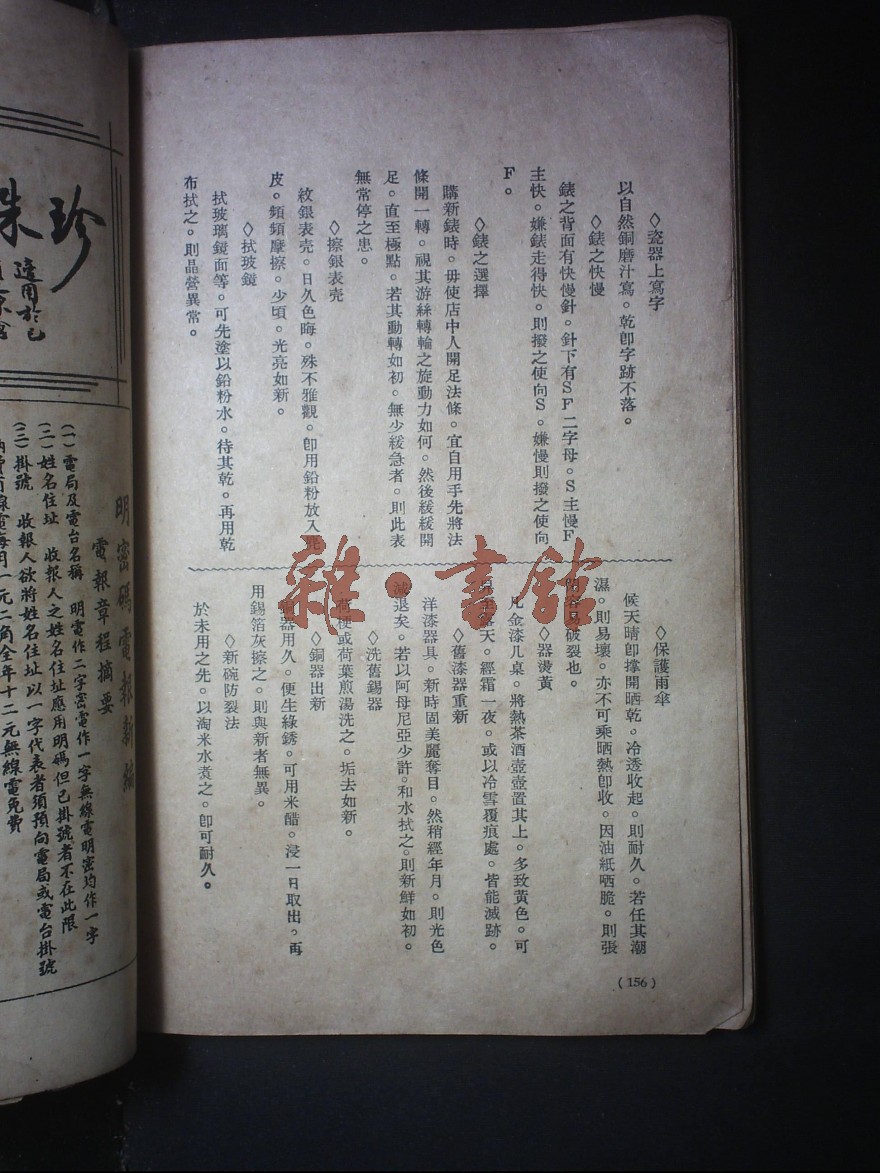 ◇瓷器上寫字
以自然銅磨汁寫。乾卽字跡不落。
◇錶之快慢
錶之背面有快慢針。針下有SF二字母。S主慢F
主快。嫌錶走得快。則撥之使向S。嫌慢則撥之使向
F。
◇錶之選擇
購新錶時。毋使店中人開足法條。宜自用手先將法
條開一轉。視其游絲轉輪之旋動力如何。然後緩緩開
足。直至極點。若其動轉如初。無少緩急者。則此表
無常停之患。
◇擦銀表壳
紋銀表壳。日久色晦。殊不雅觀。卽用鉛粉放入
皮。頻頻摩擦。少頃。光亮如新。
◇拭玻鏡
拭玻璃鏡面等。可先塗以鉛粉水。待其乾。再用乾
布拭之。則晶營異常。
◇保護雨傘
候天晴卽撑開晒乾。冷透收起。則耐久。若任其潮
濕。則易壞。亦不可乘晒熱卽收。因油紙晒脆。則張
閉容易破裂也。
◇器燙黃
凡金漆几桌。將熱茶酒壺壼置其上。多致黃色。可
露天。經霜一夜。或以冷雪覆痕處。皆能滅跡。
◇舊漆器重新
洋漆器具。新時固美麗奪目。然稍經年月。則光色
減退矣。若以阿母尼亞少許。和水拭之。則新鮮如初。
◇洗舊錫器
荷梗或荷葉煎湯洗之。垢去如新。
◇銅器出新
銅器用久。便生綠銹。可用米醋。浸一日取出。再
用錫箔灰擦之。則與新者無異。
◇新碗防裂法
於未用之先。以淘米水煮之。卽可耐久。
(156)
雜·書館
珍珠
適用於己
明密碼電報新編
電報章程摘要
(一)電局及電台名稱 明電作二字密電作一字無線電明密均作一字
(二)姓名住址 收報人之姓名住址應用明碼但已掛號者不在此限
(三)掛號 收報人欲將姓名住址以一字代表者須預向電局或電台掛號
納費有線電每月一元二角全年十二元無線電免費